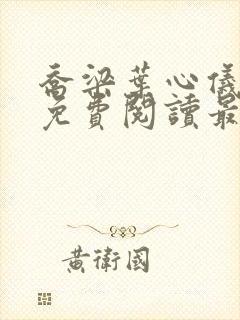 喬梁葉心儀
免費閱讀最
黃衛國